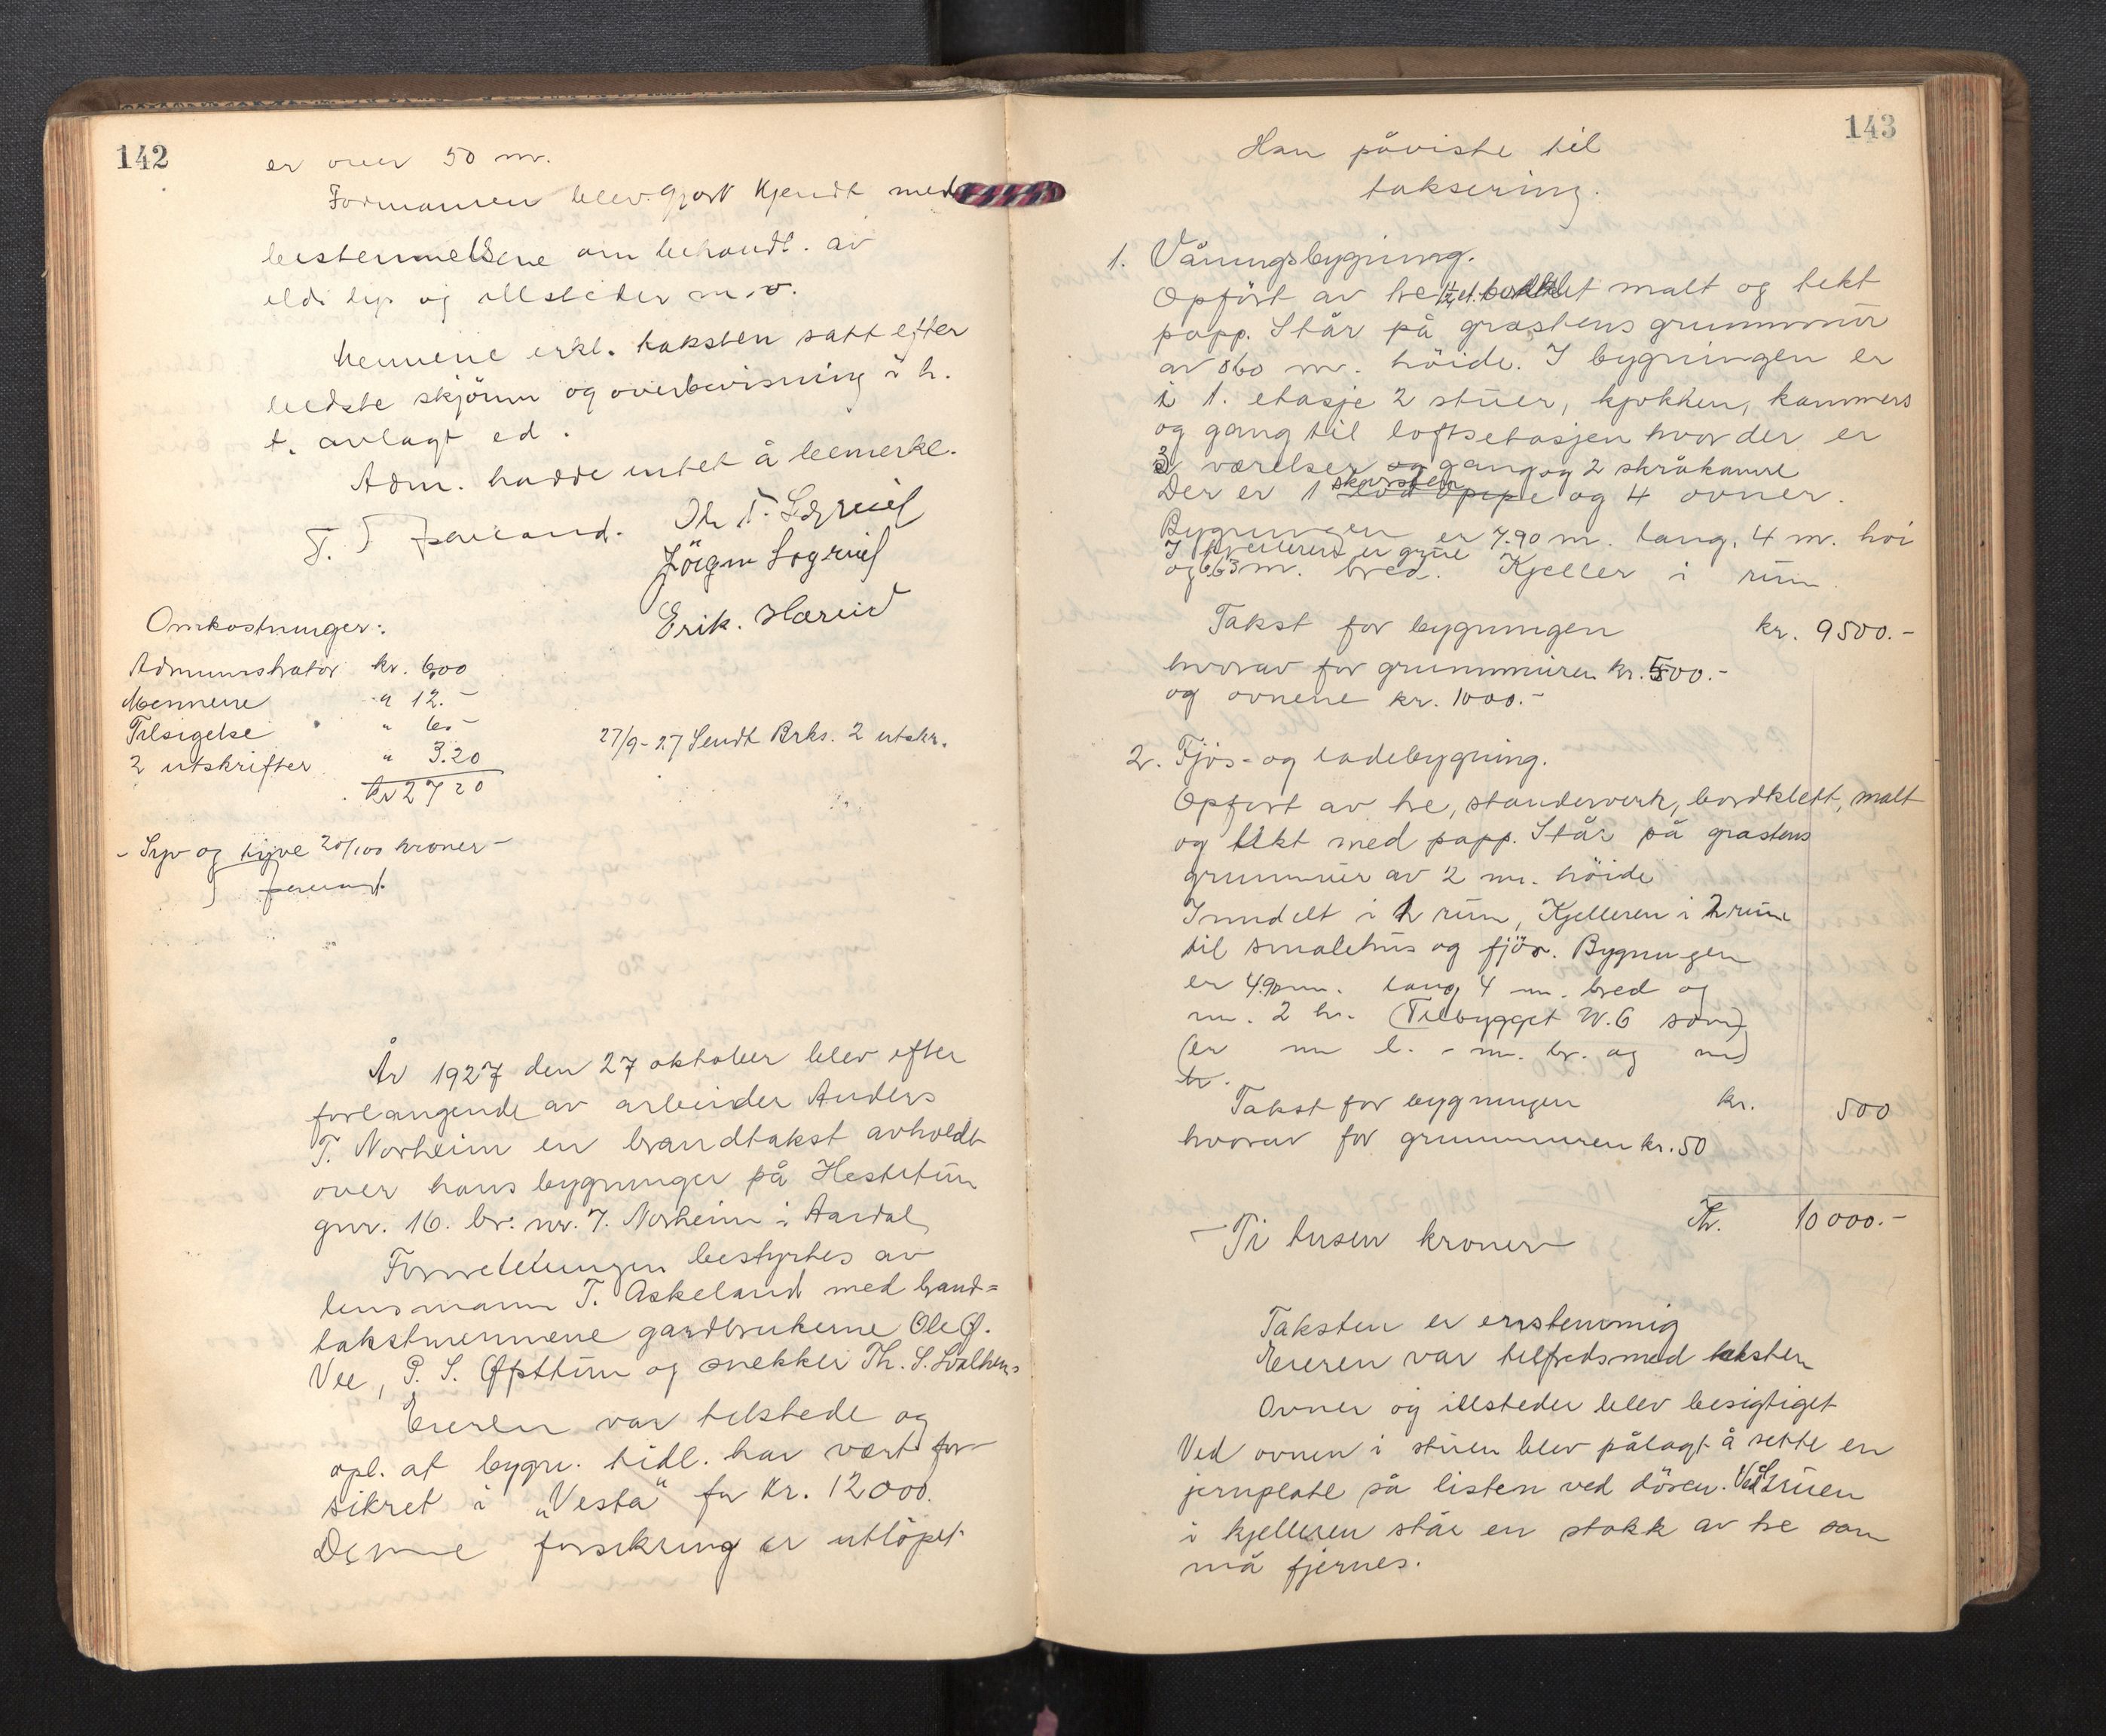 142
er over 50 m.
Formannen blev gjort kjendt med
bestemmelsene om behandl. av
ild lys og illsteder m.v.
Mennene erkl. taksten satt efter
bedste skjönn og overbevisning i h.
t. avlagt ed.
Adm. hadde intet å bemerke.
Omkostninger:
Administrator kr. 6,00
Mennene " 12.-
Tilsigelse " 6.-
2 utskrifter " 3.20
kr 27 20
27/9-27 Sendt Brks. 2 utskr.
- Syv og tyve 20/100 kroner -
År 1927 den 27 oktober blev efter
forlangende av arbeider Anders
T. Norheim en brandtakst avholdt
over hans bygninger på Hestetun
gnr. 16. br. nr. 7. Norheim i Aardal
Forretningen bestyrtes av
lensmann T. Askeland med brand=
takstmennene gardbrukerne Ole Ø.
Vee, P. S. Øpttun og snekker Th. S.
Eieren var tilstede og
opl. at bygn. tidl. har vært for-
sikret i "Vesta" for kr. 12000.
Denne forsikring er utlöpet
143
Han påviste til
taksering.
1. Våningsbygning.
Opfört av tre 1½ et. bordklet malt og tekt
papp. Står på grastens grunnmur
av 060 m. höide. I bygningen er
i 1. etasje 2 stuer, kjøkken, kammers
og gang til loftsetasjen hvor der er
3 værelser og gang og 2 skråkamre
Der er 1 skorsten og 4 ovner.
Bygningen er 7.90 m. lang, 4 m. höi
I kjelleren er grue
og 6.63 m. bred. Kjeller i rum.
Takst for bygningen kr. 9500.-
hvorav for grunnmuren kr. 500.-
og ovnene kr. 1000.-
2. Fjös- og ladebygning.
Opfört av tre, standerverk, bordklett, malt
og tekt med papp. Står på grastens
grunnmur av 2 m. höide
Inndelt i 2 rum, Kjelleren i 2 rum
til smalehus og fjös. Bygningen
er 4.90 m. lang 4 m. bred og
m. 2 h. (Tilbygget N.6 som)
(er m l. - m. br. og m)
h.
Takst for bygningen kr. 500
hvorav for grunnmuren kr. 50
Kr. 10000.-
- Ti tusen kroner -
Taksten er enstemmig
Eieren var tilfreds med taksten
Ovner og illsteder blev besigtiget
Ved ovnen i stuen blev pålagt å sette en
jernplate på listen ved dören. Ved Gruen
i kjelleren står en stokk av tre som
må fjernes.